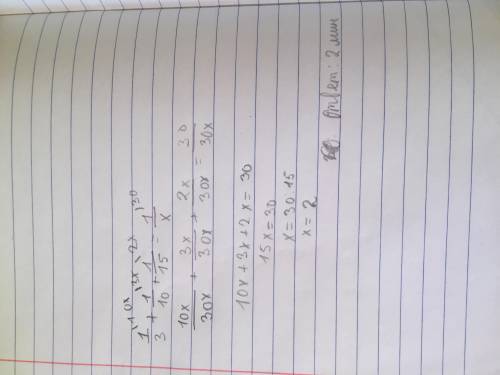 1/3 + 1/10 + 1/15 = 1/x
10x/30x + 3x/30x + 2x/30x = 30/30x
10x + 3x + 2x = 30
15x = 30
x = 30 : 15
x = 2
Ответ: 2 мин